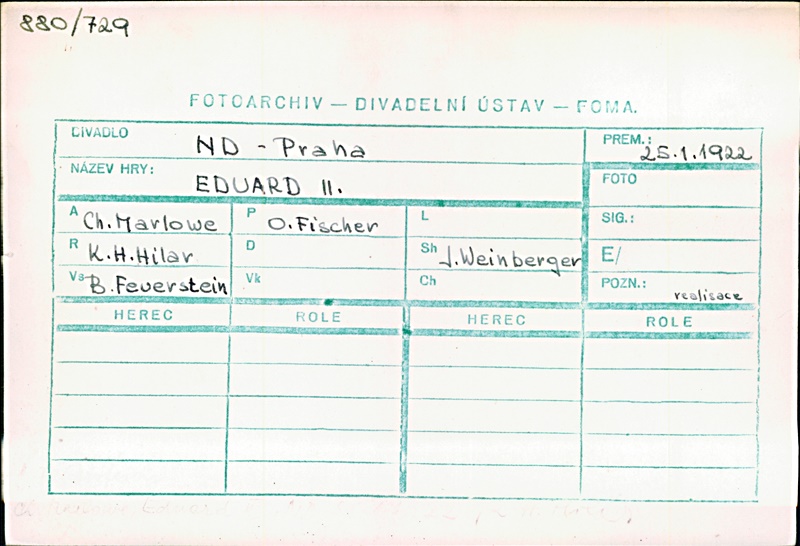 880/729
FOTOARCHIV — DIVADELNÍ ÚSTAV — FOMA.
DIVADLO ND - Praha
PREM.: 25.1.1922
NÁZEV HRY: EDUARD II.
FOTO
A Ch. Marlowe P O. Fischer L
SIG.:
R K.H. Hilar D Sh J. Weinberger
E/
Vs B. Feuerstein Vk Ch
POZN.: realisace
HEREC ROLE HEREC ROLE